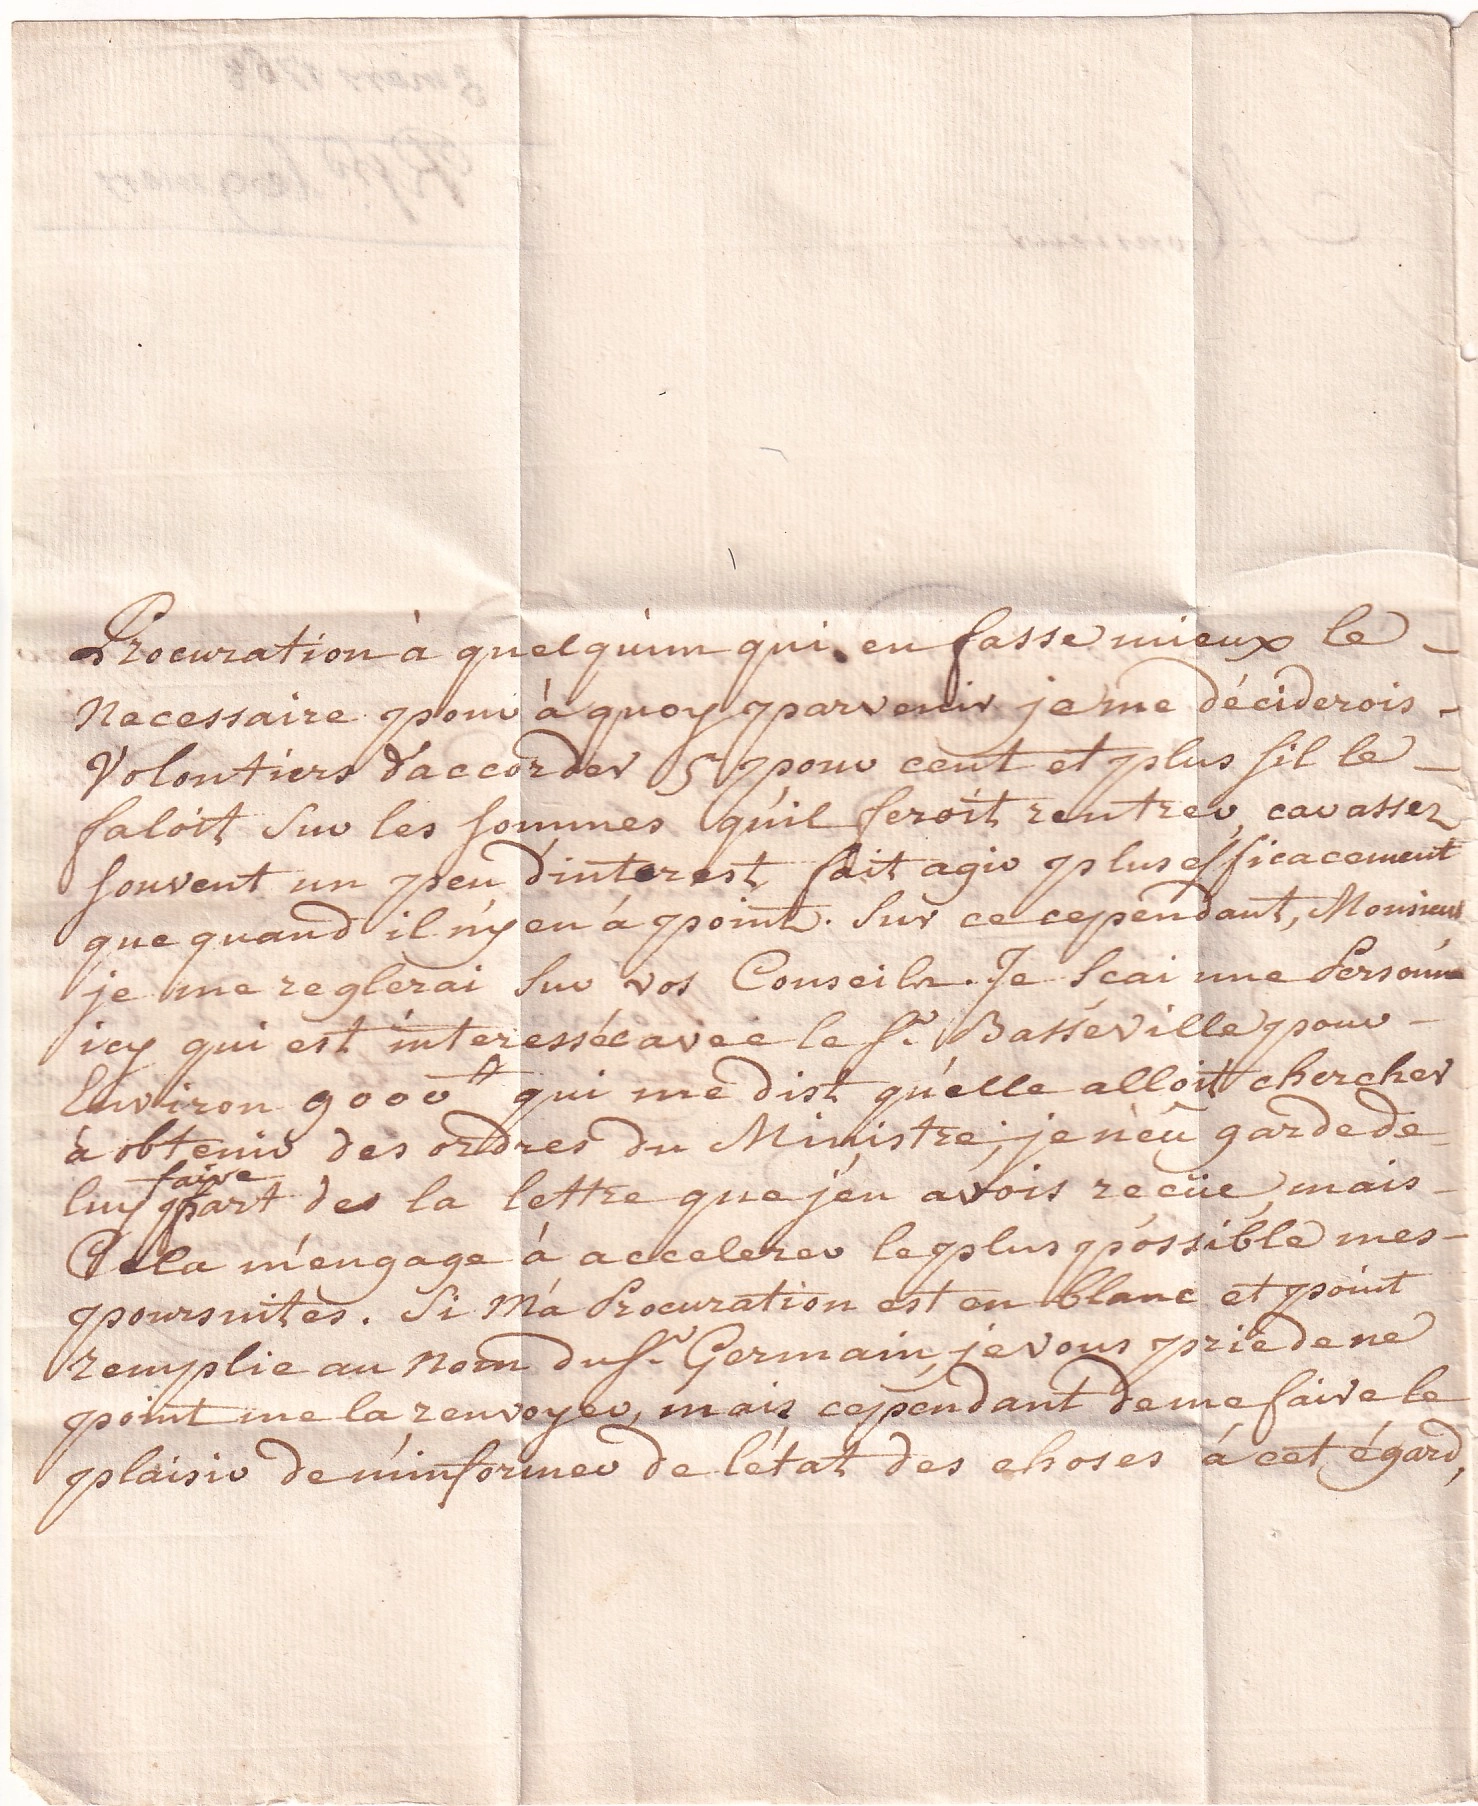 Procuration à quelqu'un qui en fasse mieux le
Necessaire pour à quoy parvenir je me déciderois
Volontiers d'accorder 5 pour cent et plus s'il le
faloit sur les sommes qu'il feroit rentrer, car assez
souvent un peu d'interest fait agir plus efficacement
que quand il n'y en à point. Sur ce cependant, Monsieur
je me reglerai sur vos Conseils. Je scai une Personne
icy qui est interessée avec le Sr. Basseville pour
Environ 9000 qui me dist qu'elle alloit chercher
à obtenir des ordres du Ministre; je n'eû garde de
luy faire part des la lettre que j'en avois reçüe, mais
Cela m'engage à accelerer le plus possible mes
poursuites. Si Ma Procuration est en blanc et point
remplie au Nom du Sr. Germain, je vous prie de ne
point me la renvoyer, mais cependant de me faire le
plaisir de m'informer de l'état des choses à cet égard,